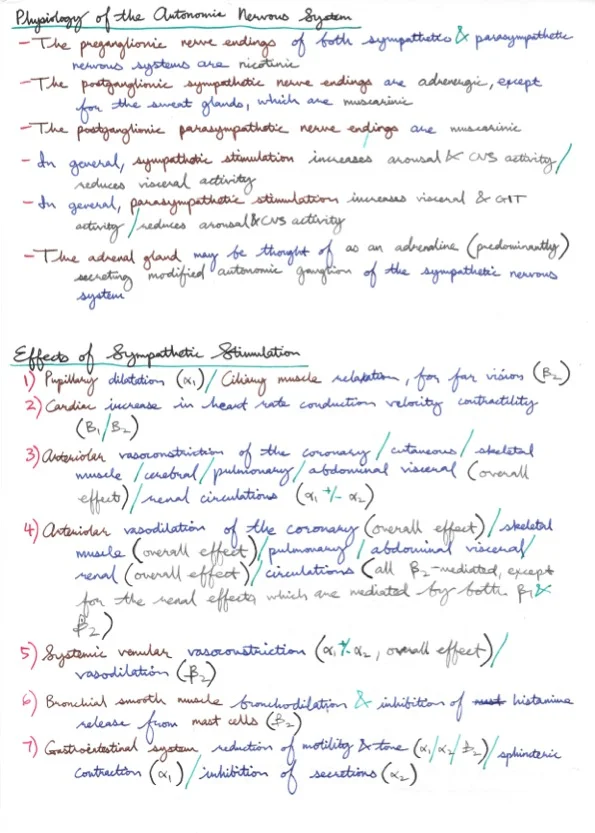 Physiology of the Autonomic Nervous System
- The preganglionic nerve endings of both sympathetic & parasympathetic
nervous systems are nicotinic
- The postganglionic sympathetic nerve endings are adrenergic, except
for the sweat glands, which are muscarinic
- The postganglionic parasympathetic nerve endings are muscarinic
- In general, sympathetic stimulation increases arousal & CNS activity/
reduces visceral activity
- In general, parasympathetic stimulation increases visceral & GIT
activity/reduces arousal & CNS activity
- The adrenal gland may be thought of as an adrenaline (predominantly)
secreting modified autonomic ganglion of the sympathetic nervous
system
Effects of Sympathetic Stimulation
1) Pupillary dilatation (α1)/Ciliary muscle relaxation, for far vision (β2)
2) Cardiac increase in heart rate conduction velocity contractility
(β1/β2)
3) Arteriolar vasoconstriction of the coronary/cutaneous/skeletal
muscle/cerebral/pulmonary/abdominal visceral (overall
effect)/renal circulations (α1 +/- α2)
4) Arteriolar vasodilation of the coronary (overall effect)/skeletal
muscle (overall effect)/pulmonary/abdominal visceral/
renal (overall effect)/circulations (all β2-mediated, except
for the renal effects, which are mediated by both β1 &
β2)
5) Systemic venular vasoconstriction (α1 +/- α2, overall effect)/
vasodilation (β2)
6) Bronchial smooth muscle bronchodilation & inhibition of histamine
release from mast cells (β2)
7) Gastrointestinal system reduction of motility & tone (α1/α2/β2)/sphincteric
contraction (α1)/inhibition of secretions (α2)